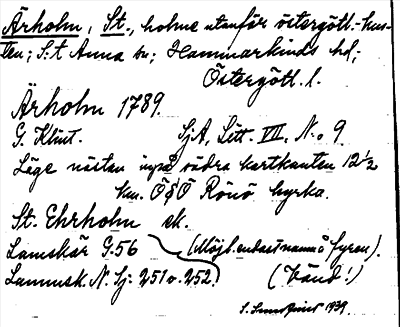 Ärholm, St., holme utanför östergötl.-kus-
ten; S:t Anna sn; Hammarkinds hd;
Östergötl. l.
Ärholm 1789.
G. Klint. SjA, Litt. VII, N:o 9
Läge nästan invid södra kartkanten 12 ½
km. ÖSÖ Rönö kyrka.
St. Ehrholm ek.
Lamskär G:56 (Möjl. endast namn å fyren).
Lammsk. N. Sj: 251 o. 252. (Vänd!)
1939.